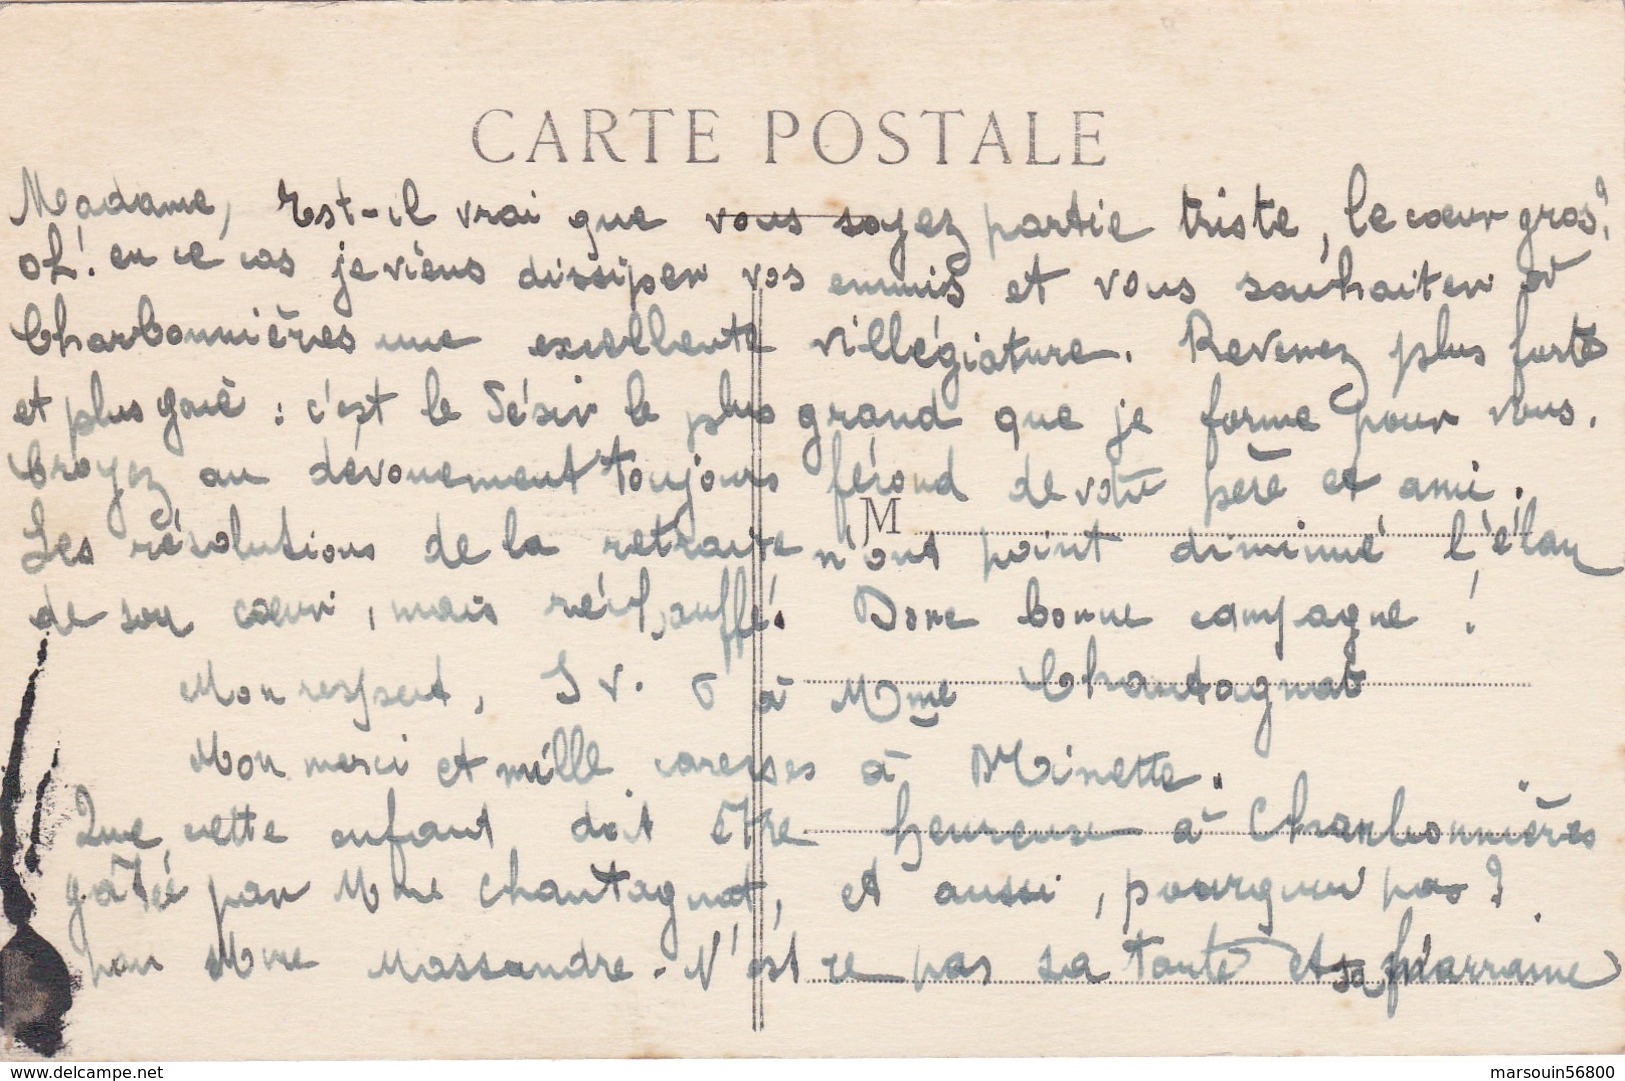 CARTE POSTALE
Madame, Est-il vrai que vous soyez partie triste, le cœur gros?
oh! en ce cas je viens dissiper vos ennuis et vous souhaiter à
Charbonnières une excellente villégiature. Revenez plus forte
et plus gaie : c'est le désir le plus grand que je forme pour vous.
Croyez au dévouement toujours fécond de votre père et ami.
M
Les résolutions de la retraite n'ont point diminué l'élan
de son cœur, mais réchauffé. Donc bonne campagne !
Mon respect, S.V. à Mme Chantagnat
Mon merci et mille caresses à Minette.
Que cette enfant doit être heureuse à Charbonnières
gâtée par Mme Chantagnat, et aussi, pourquoi pas ?
par Mme Massandre - N'est ce pas sa tante et sa marraine
delcampe.net
marsouin56800